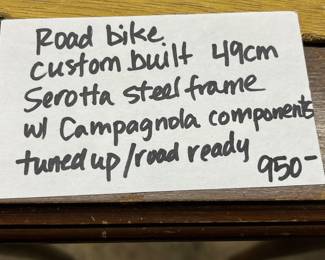 Road bike
custom built 49cm
Serotta steel frame
w/ Campagnola components
tuned up/road ready
950-